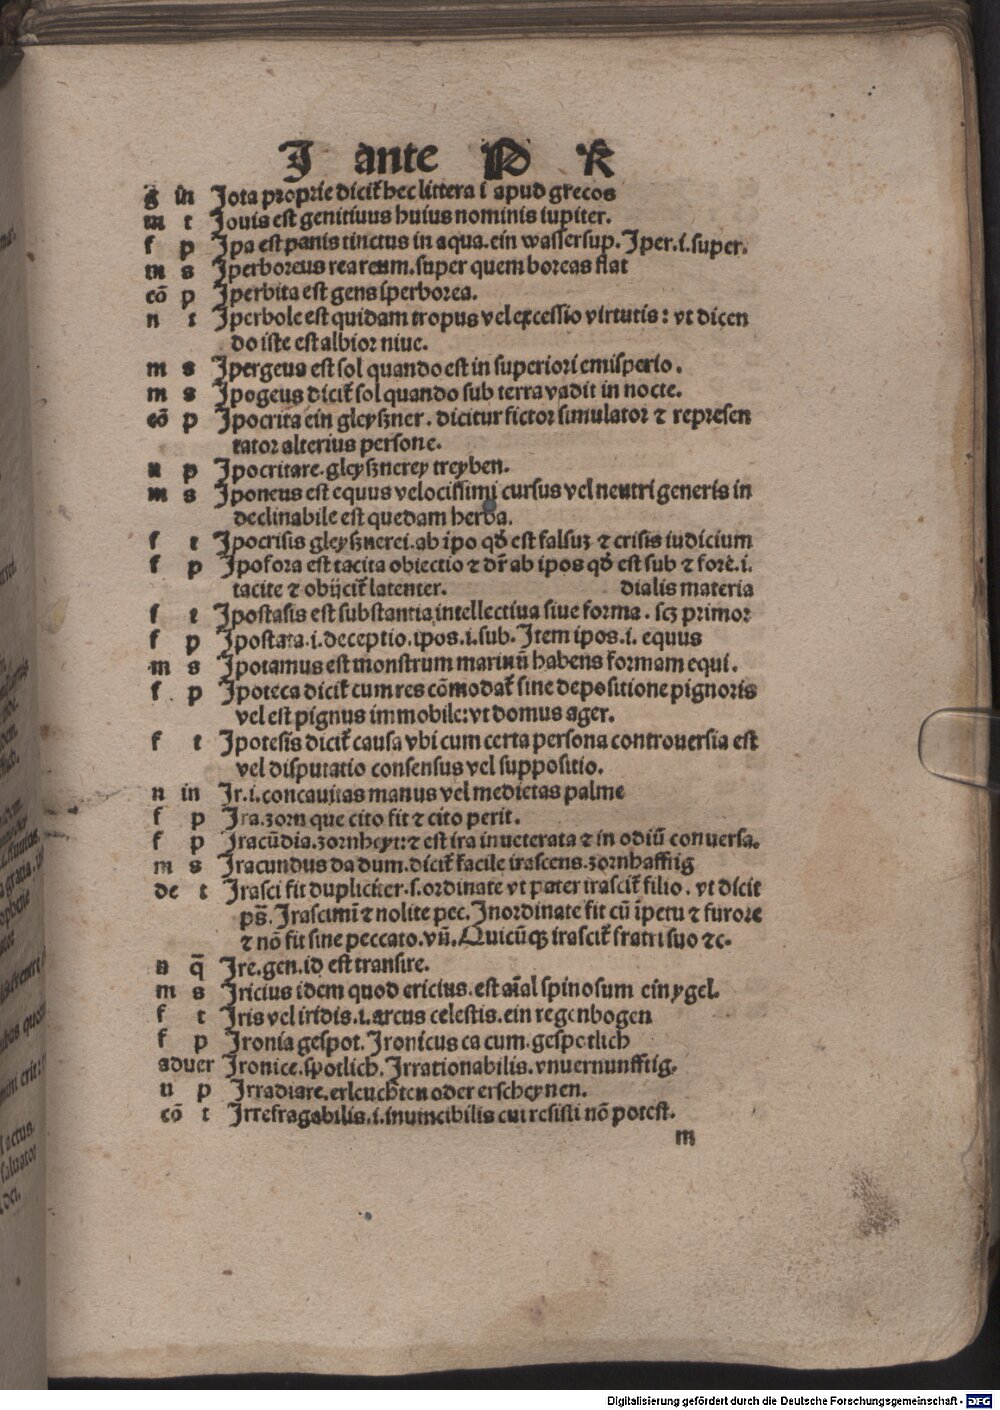 J ante P R
g in Jota proprie dicit᷑ hec littera i apud grecos
m t Jouis est genitiuus huius nominis iupiter.
f p Jpa est panis tinctus in aqua. ein wassersup. Jper .i. super.
m s Jperboreus rea reum. super quem boreas flat
cō p Jperbita est gens iperborea.
n t Jperbole est quidam tropus vel excessio virtutis: vt dicen
do iste est albior niue.
m s Jpergeus est sol quando est in superiori emisperio.
m s Jpogeus dicit᷑ sol quando sub terra vadit in nocte.
cō p Jpocrita ein gleyszner. dicitur fictor simulator ⁊ represen
tator alterius persone.
n p Jpocritare. gleysznerey treyben.
m s Jponeus est equus velocissimi cursus vel neutri generis in
declinabile est quedam herba.
f t Jpocrisis gleysznerei. ab ipo qđ est falsuꝫ ⁊ crisis iudicium
f p Jpofora est tacita obiectio ⁊ dr̄ ab ipos qđ est sub ⁊ fore .i.
tacite ⁊ obijcit᷑ latenter. dialis materia
f t Jpostasis est substantia intellectiua siue forma. scꝫ primor
f p Jpostata .i. deceptio. ipos .i. sub. Jtem ipos .i. equus
m s Jpotamus est monstrum marinū habens formam equi.
f p Jpoteca dicit᷑ cum res cōmodat᷑ sine depositione pignoris
vel est pignus immobile: vt domus ager.
f t Jpotesis dicit᷑ causa vbi cum certa persona controuersia est
vel disputatio consensus vel suppositio.
n in Jr .i. concauitas manus vel medietas palme
f p Jra. zorn que cito fit ⁊ cito perit.
f p Jracūdia. zornheyt: ⁊ est ira inueterata ⁊ in odiū conuersa.
m s Jracundus da dum. dicit᷑ facile irascens. zornhafftig
de t Jrasci fit dupliciter. s. ordinate vt pater irascit᷑ filio. vt dicit
ps̄. Jrascimī ⁊ nolite pec. Jnordinate fit cū īpetu ⁊ furore
⁊ nō fit sine peccato. vn̄. Quicūqꝫ irascit᷑ fratri suo ⁊c.
n q̄ Jre. gen. id est transire.
m s Jricius idem quod ericius. est aīal spinosum ein ygel.
f t Jris vel iridis .i. arcus celestis. ein regenbogen
f p Jronia gespot. Jronicus ca cum. gespotlich
aduer Jronice. spotlich. Jrrationabilis. vnuernunfftig.
n p Jrradiare. erleuchten oder erscheynen.
cō t Jrrefragabilis .i. inuincibilis cui resisti nō potest.
m
Digitalisierung gefördert durch die Deutsche Forschungsgemeinschaft - DFG